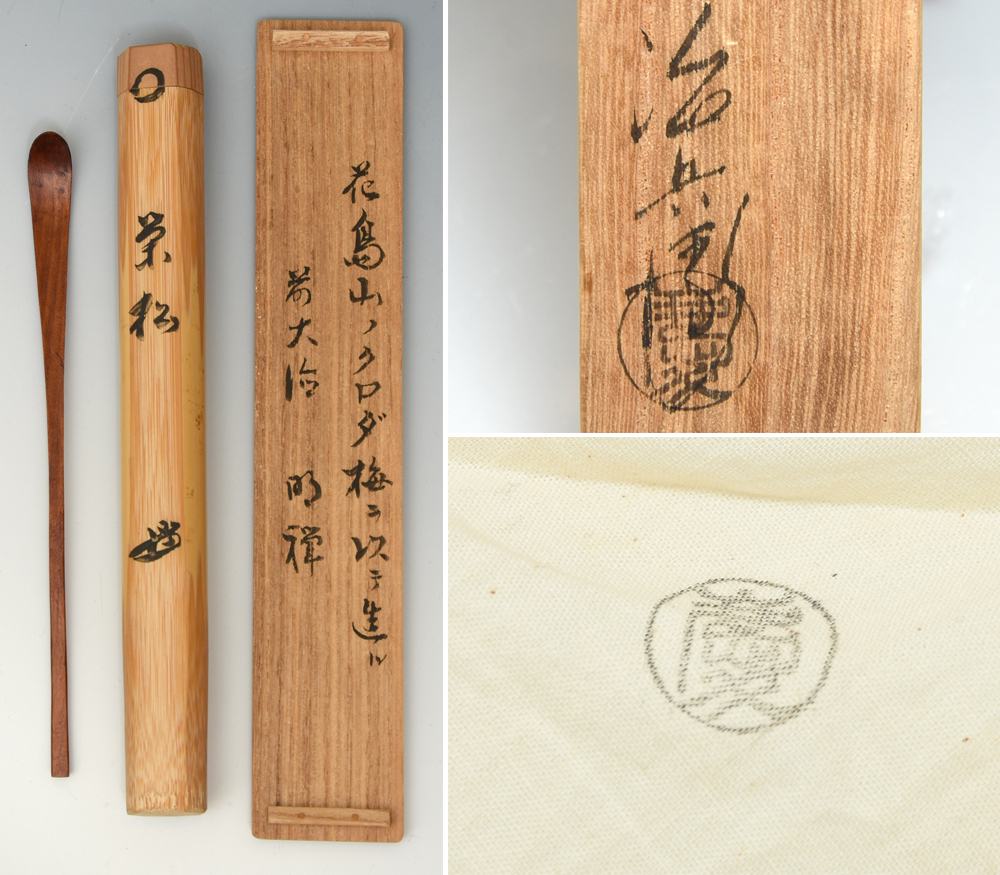 栄松
花鳥山ノクロダ梅ヲ以テ造ル
前大徳 明禅
治兵衛